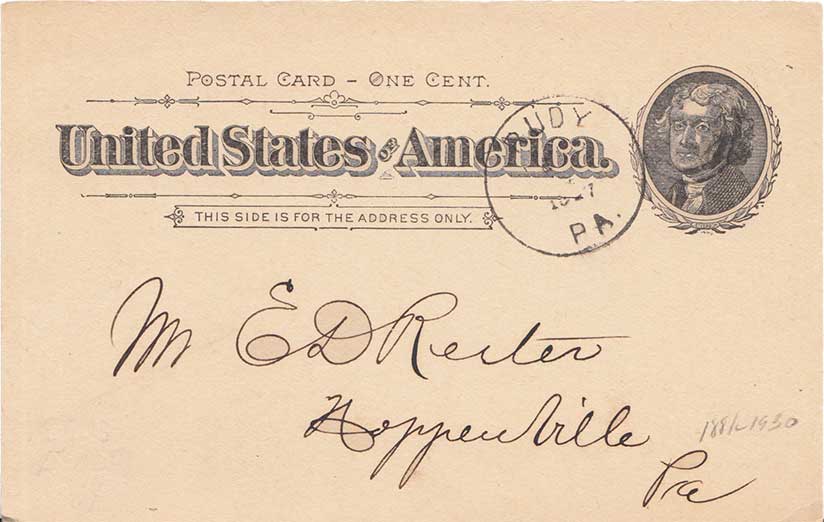 POSTAL CARD – ONE CENT.
United States OF America.
THIS SIDE IS FOR THE ADDRESS ONLY.
PA.
Mr E D Reiter
Hoppenville
Pa
1881-1930